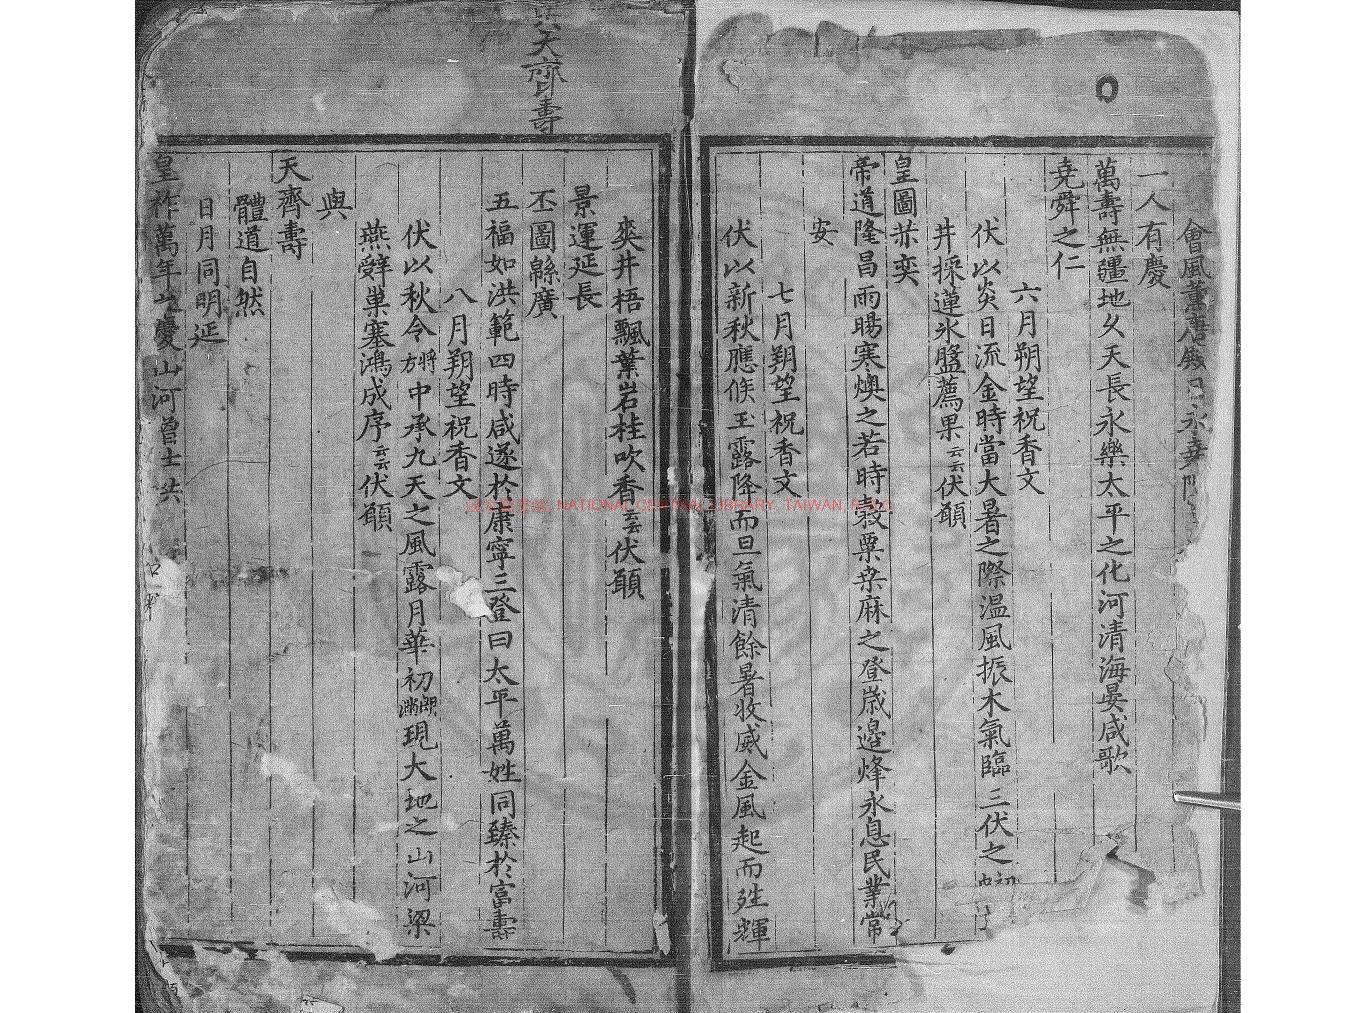 會風薰 永堯
一人有慶
萬壽無疆地久天長永樂太平之化河清海晏咸歌
堯舜之仁
六月朔望祝香文
伏以炎日流金時當大暑之際溫風振木氣臨三伏之
井採蓮氷盤薦果云云伏願
皇圖恭奕
帝道隆昌雨暘寒燠之若時穀粟桒麻之登歲邊烽永息民業常
安
七月朔望祝香文
伏以新秋應候玉露降而旦氣清餘暑收威金風起而殅輝
奕井梧飄葉岩桂吹香云云伏願
景運延長
丕圖緜廣
五福如洪範四時咸遂於康寧三登曰太平萬姓同臻於富壽
八月朔望祝香文
伏以秋令將方中承九天之風露月華初朗滿現大地之山河梁
燕辤巢塞鴻成序云云伏願
與
天齊壽
體道自然
日月同明延
皇祚萬年之慶山河曾士共
天齊壽
NATIONAL CENTRAL LIBRARY, TAIWAN, R.O.C